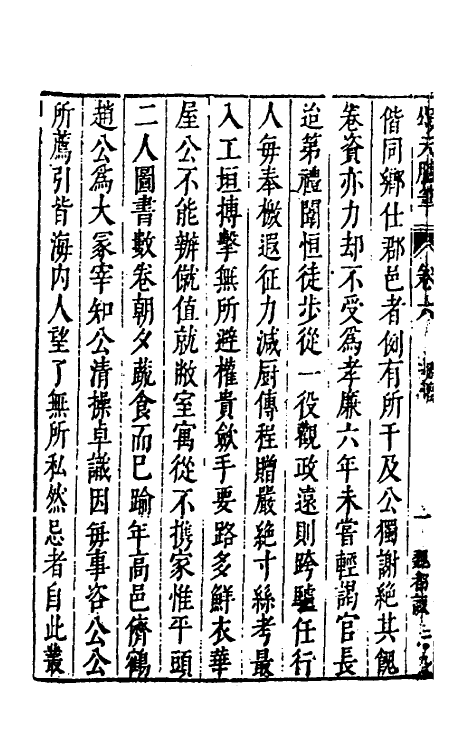 頌天臚筆 卷六 一
偕同鄉仕郡邑者例有所干及公獨謝絕其餽
卷資亦力却不受為孝廉六年未嘗輕謁官長
迨第禮闈恒徒步從一役觀政遠則跨驢任行
人每奉檄遐征力減厨傳程贈嚴絕寸絲考最
入工垣搏擊無所避權貴斂手要路多鮮衣華
屋公不能辦僦值就敝室寓從不携家惟平頭
二人圖書數卷朝夕蔬食而已踰年高邑儕鶴
趙公為大冢宰知公清操卓識因每事咨公公
所薦引皆海內人望了無所私然忌者自此叢